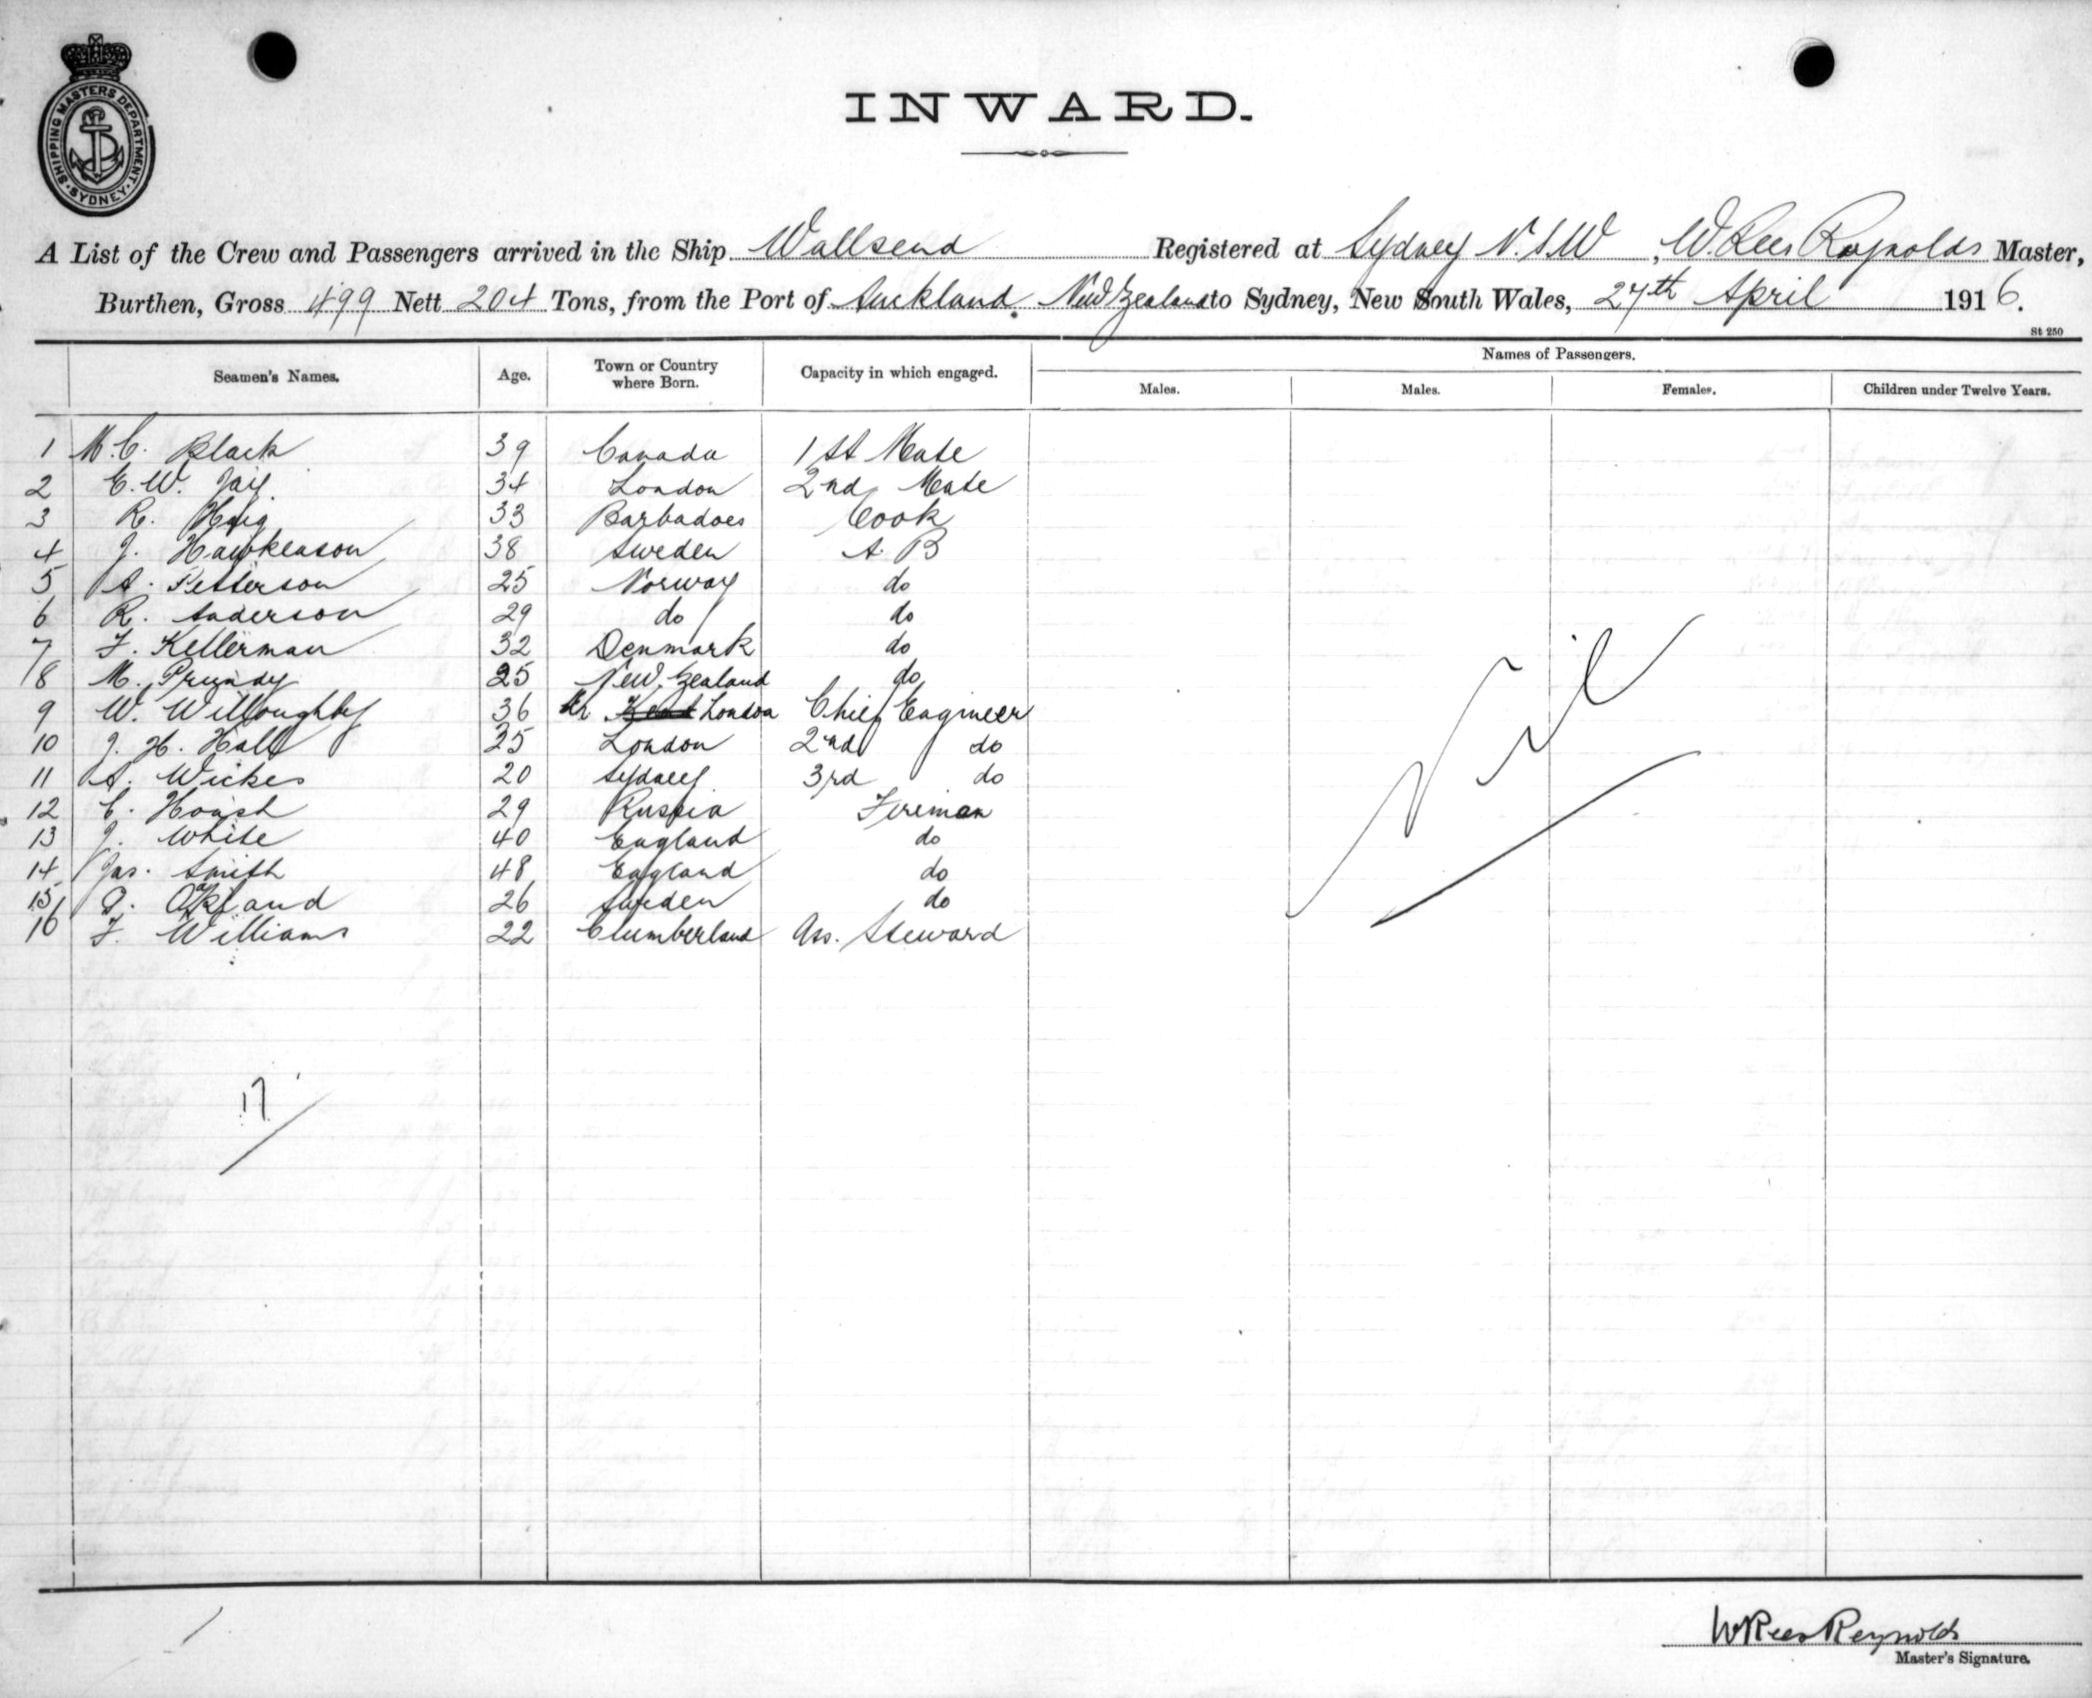 SHIPPING MASTERS DEPARTMENT. SYDNEY
INWARD.
A List of the Crew and Passengers arrived in the Ship Wallsend Registered at Sydney N.S.W, W. Rees Reynolds Master,
Burthen, Gross 499 Nett 204 Tons, from the Port of Auckland. New Zealand to Sydney, New South Wales, 27th April 1916.
St 250
Seamen's Names. Age. Town or Country where Born. Capacity in which engaged. Names of Passengers.
Males. Males. Females. Children under Twelve Years.
1 M.C. Black 39 Canada 1st Mate
2 E.W. Jay 34 London 2nd Mate
3 R. Haig 33 Barbadoes Cook
4 J. Hawkenson 38 Sweden A B
5 A. Petterson 25 Norway do
6 R. Anderson 29 do do
7 F. Kellerman 32 Denmark do
8 M. 25 New Zealand do
9 W. Willoughby 36 London Chief Engineer
10 J. H. Hall 25 London 2nd do
11 A. Wickes 20 Sydney 3rd do
12 C. 29 Russia Fireman
13 J. White 40 England do
14 Jas. Smith 48 England do
15 26 Sweden do
16 F. Williams 22 Clumberland Ass. Steward
Nil
17
W Rees Reynolds
Master's Signature.